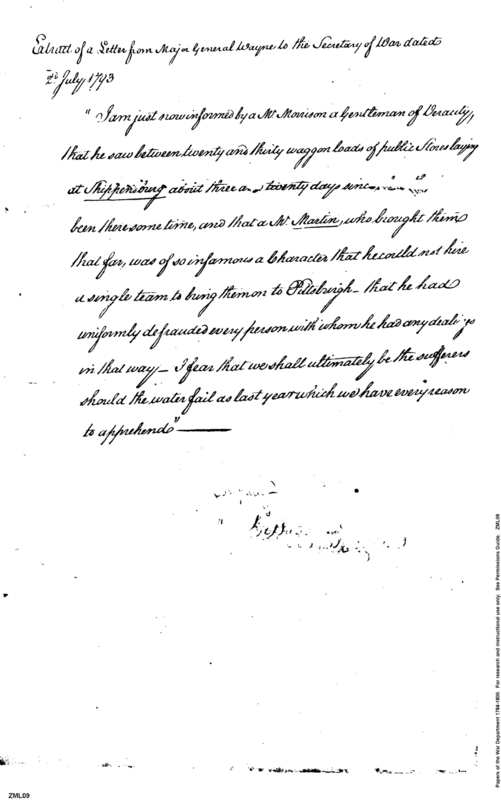 Extract of a Letter from Major General Wayne to the Secretary of War dated
2d July 1793
"I am just now informed by a Mr. Morrison a Gentleman of Veracity,
that he saw between twenty and thirty waggon loads of public Stores laying
at Shippensburg about three and twenty days since
been there some time, and that a Mr. Martin, who brought them
that far, was of so infamous a Character that he could not hire
a single team to bring them on to Pittsburgh - that he had
uniformly defrauded every person with whom he had any dealings
in that way - I fear that we shall ultimately be the sufferers
should the water fail as last year which we have every reason
to apprehend"
Papers of the War Department 1784-1800. For research and instructional use only. See Permissions Guide. ZML09
ZML09